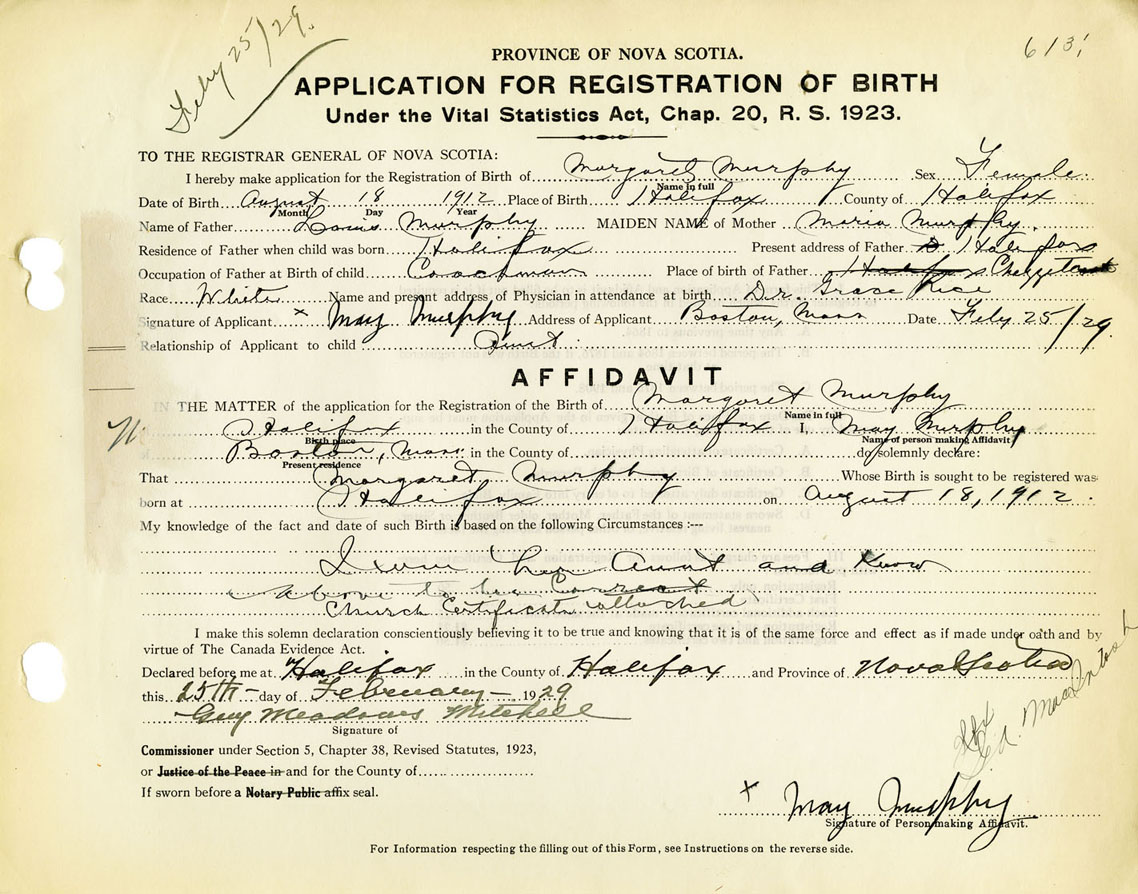 Feby 25/29.
613
PROVINCE OF NOVA SCOTIA.
APPLICATION FOR REGISTRATION OF BIRTH
Under the Vital Statistics Act, Chap. 20, R. S. 1923.
TO THE REGISTRAR GENERAL OF NOVA SCOTIA:
I hereby make application for the Registration of Birth of Margaret Murphy Sex Female.
Name in full
Date of Birth August 18 1912 Place of Birth Halifax County of Halifax
Month Day Year
Name of Father Louis Murphy MAIDEN NAME of Mother Maria Murphy.
Residence of Father when child was born Halifax Present address of Father Halifax
Occupation of Father at Birth of child Coachman Place of birth of Father Halifax Chezzetcook
Race White Name and present address of Physician in attendance at birth Dr. Grace Rice
Signature of Applicant x May Murphy Address of Applicant Boston, Mass Date Feby 25/29.
Relationship of Applicant to child Aunt.
AFFIDAVIT
IN THE MATTER of the application for the Registration of the Birth of Margaret Murphy
Name in full
Halifax in the County of Halifax I, May Murphy
Birth place Name of person making Affidavit
Boston, Mass in the County of do solemnly declare:
Present residence
That Margaret Murphy Whose Birth is sought to be registered was
born at Halifax on August 18, 1912.
My knowledge of the fact and date of such Birth is based on the following Circumstances :---
I am her Aunt and Know
above to be Correct
Church Certificate attached
I make this solemn declaration conscientiously believing it to be true and knowing that it is of the same force and effect as if made under oath and by
virtue of The Canada Evidence Act.
Declared before me at Halifax in the County of Halifax and Province of Nova Scotia
this 25th day of February 1929
Guy Meadows Mitchell
Signature of
Commissioner under Section 5, Chapter 38, Revised Statutes, 1923,
or Justice of the Peace in and for the County of
If sworn before a Notary Public affix seal.
MacIntosh
x May Murphy
Signature of Person making Affidavit.
For Information respecting the filling out of this Form, see Instructions on the reverse side.